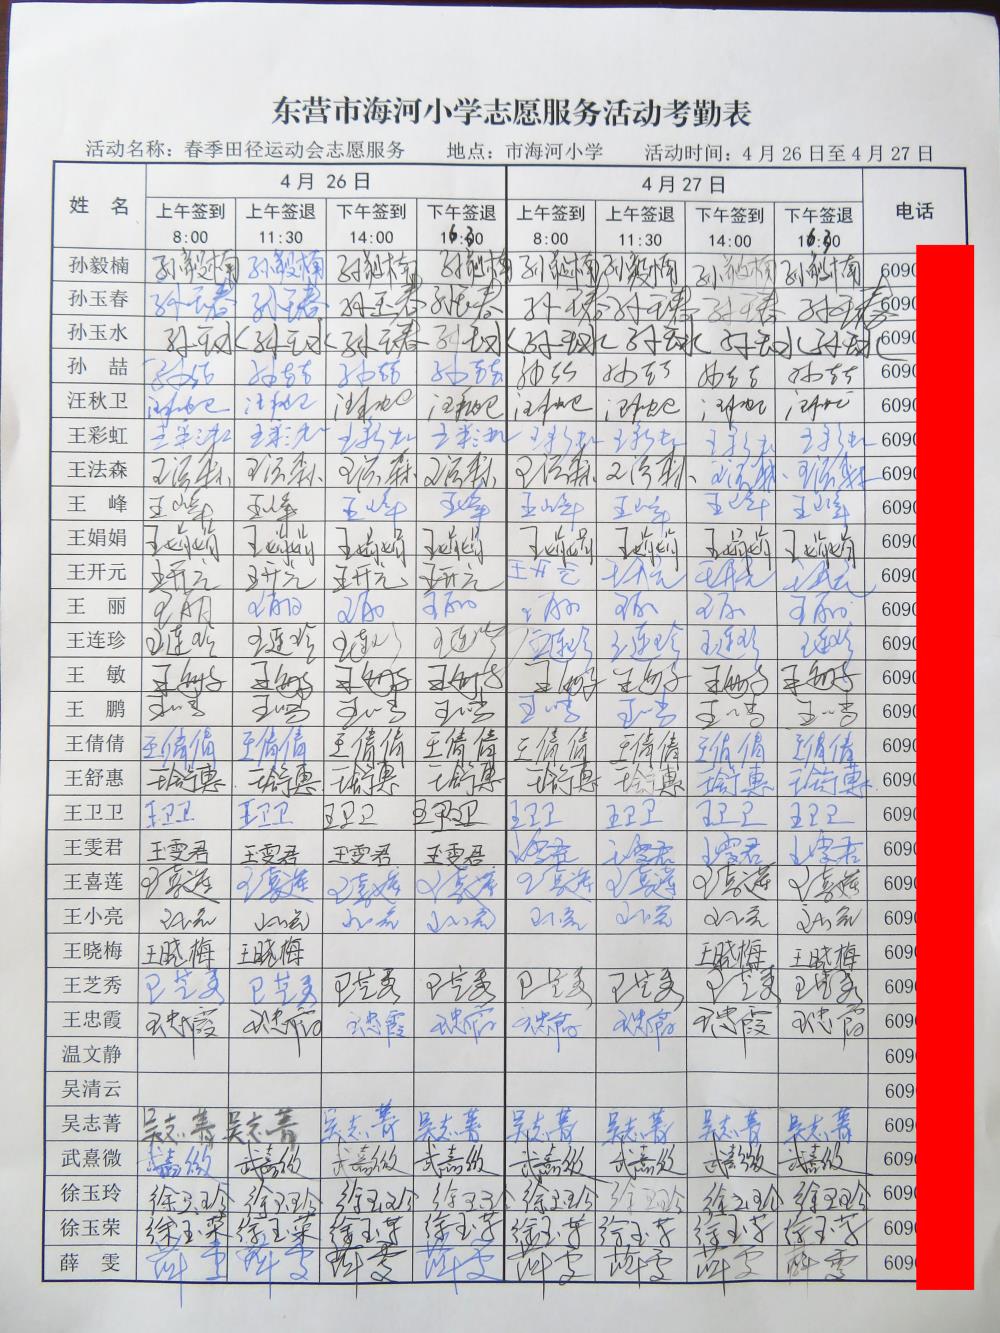 东营市海河小学志愿服务活动考勤表
活动名称：春季田径运动会志愿服务 地点：市海河小学 活动时间：4月26日至4月27日
姓 名 4月 26日 4月27日 电话
上午签到 上午签退 下午签到 下午签退 上午签到 上午签退 下午签到 下午签退
8:00 11:30 14:00 8:00 11:30 14:00
孙毅楠 孙毅楠 孙毅楠 孙毅楠 孙毅楠 孙毅楠 孙毅楠 孙毅楠 孙毅楠 6090
孙玉春 孙玉春 孙玉春 孙玉春 孙玉春 孙玉春 孙玉春 孙玉春 孙玉春 6090
孙玉水 孙玉水 孙玉水 孙玉春 孙玉水 孙玉水 孙玉水 孙玉水 孙玉水 6090
孙 喆 孙喆 孙喆 孙喆 孙喆 孙喆 孙喆 孙喆 孙喆 6090
汪秋卫 汪秋卫 汪秋卫 汪秋卫 汪秋卫 汪秋卫 汪秋卫 汪秋卫 汪秋卫 6090
王彩虹 王彩虹 王彩虹 王彩虹 王彩虹 王彩虹 王彩虹 王彩虹 王彩虹 6090
王法森 王法森 王法森 王法森 王法森 王法森 王法森 王法森 王法森 6090
王 峰 王峰 王峰 王峰 王峰 王峰 王峰 王峰 王峰 6090
王娟娟 王娟娟 王娟娟 王娟娟 王娟娟 王娟娟 王娟娟 王娟娟 王娟娟 6090
王开元 王开元 王开元 王开元 王开元 王开元 王开元 王开元 王开元 6090
王 丽 王丽 王丽 王丽 王丽 王丽 王丽 王丽 王丽 6090
王连珍 王连珍 王连珍 王连珍 王连珍 王连珍 王连珍 王连珍 王连珍 6090
王 敏 王敏 王敏 王敏 王敏 王敏 王敏 王敏 王敏 6090
王 鹏 王鹏 王鹏 王鹏 王鹏 王鹏 王鹏 王鹏 王鹏 6090
王倩倩 王倩倩 王倩倩 王倩倩 王倩倩 王倩倩 王倩倩 王倩倩 王倩倩 6090
王舒惠 王舒惠 王舒惠 王舒惠 王舒惠 王舒惠 王舒惠 王舒惠 王舒惠 6090
王卫卫 王卫卫 王卫卫 王卫卫 王卫卫 王卫卫 王卫卫 王卫卫 王卫卫 6090
王雯君 王雯君 王雯君 王雯君 王雯君 王雯君 王雯君 王雯君 王雯君 6090
王喜莲 王喜莲 王喜莲 王喜莲 王喜莲 王喜莲 王喜莲 王喜莲 王喜莲 6090
王小亮 王小亮 王小亮 王小亮 王小亮 王小亮 王小亮 王小亮 王小亮 6090
王晓梅 王晓梅 王晓梅 王晓梅 王晓梅 6090
王芝秀 王芝秀 王芝秀 王芝秀 王芝秀 王芝秀 王芝秀 王芝秀 王芝秀 6090
王忠霞 王忠霞 王忠霞 王忠霞 王忠霞 王忠霞 王忠霞 王忠霞 王忠霞 6090
温文静 6090
吴清云 6090
吴志菁 吴志菁 吴志菁 吴志菁 吴志菁 吴志菁 吴志菁 吴志菁 吴志菁 6090
武熹微 武熹微 武熹微 武熹微 武熹微 武熹微 武熹微 武熹微 武熹微 6090
徐玉玲 徐玉玲 徐玉玲 徐玉玲 徐玉玲 徐玉玲 徐玉玲 徐玉玲 徐玉玲 6090
徐玉荣 徐玉荣 徐玉荣 徐玉荣 徐玉荣 徐玉荣 徐玉荣 徐玉荣 徐玉荣 6090
薛 雯 薛雯 薛雯 薛雯 薛雯 薛雯 薛雯 薛雯 薛雯 6090